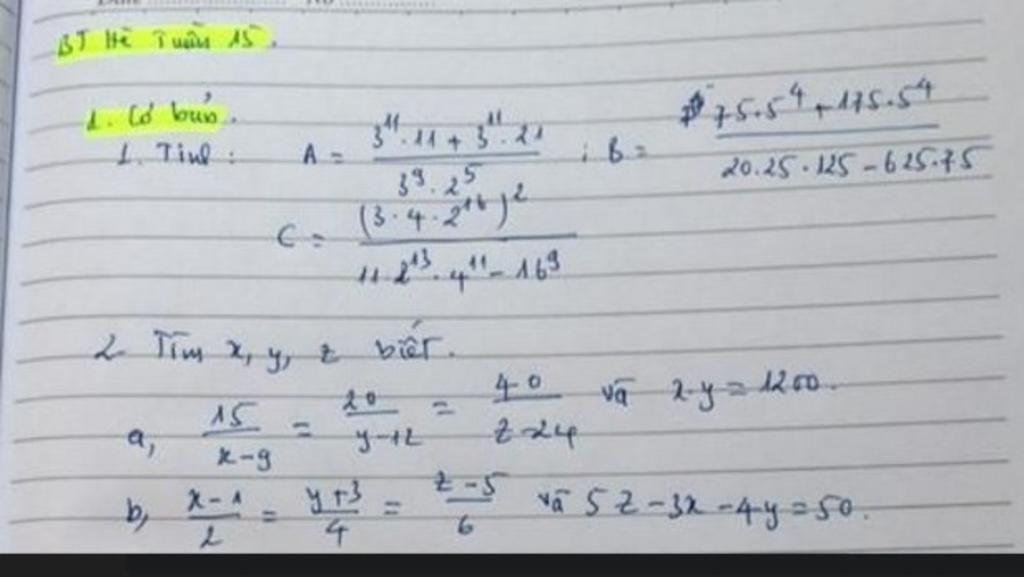 BT Hè Tuần 15.
1. Cơ bản.
1. Tính: A = (3^11 . 11 + 3^11 . 21) / (3^9 . 2^5) ; B = (75.5^4 + 175.5^4) / (20.25.125 - 625.75)
C = (3 . 4 . 2^16)^2 / (11.2^13 . 4^11 - 16^9)
2. Tìm x, y, z biết.
a, 15/(x-9) = 20/(y-12) = 40/(z-24) và x.y = 1200.
b, (x-1)/2 = (y+3)/4 = (z-5)/6 và 5z - 3x - 4y = 50.